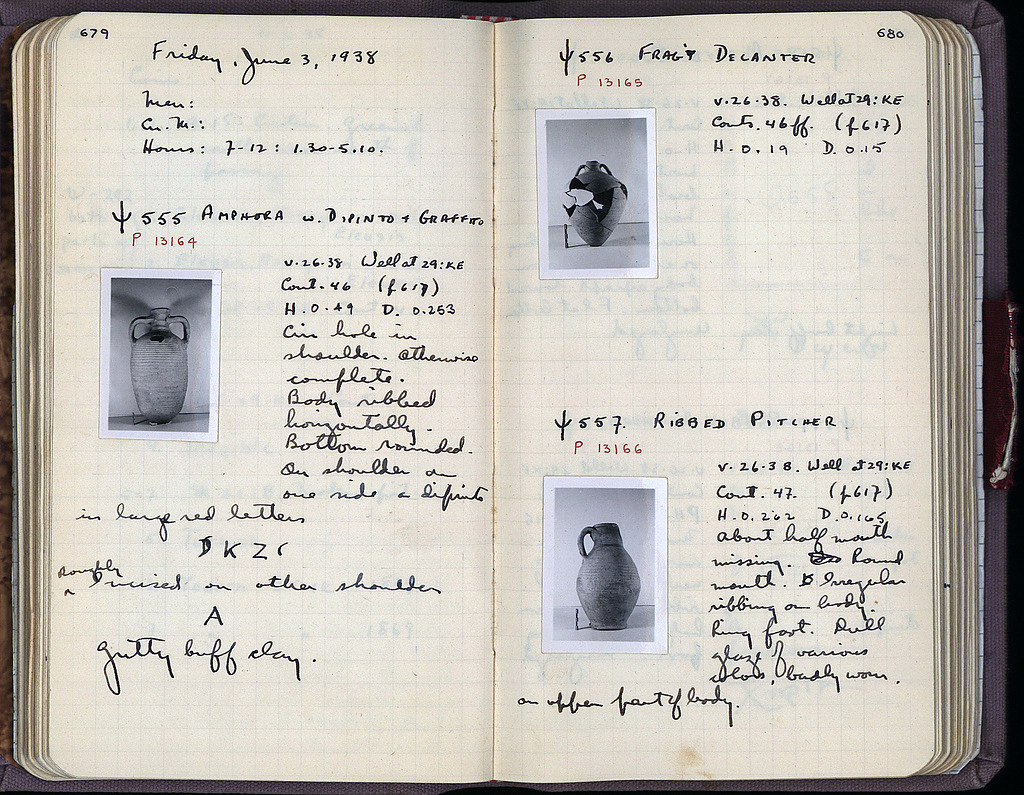 679
Friday, June 3, 1938
Men:
Cu. M.:
Hours: 7-12: 1.30-5.10.
Ψ 555 AMPHORA w. DIPINTO + GRAFFITO
P 13164
V.26.38 Well at 29:KE
Cont. 46 (p617)
H. 0.49 D. 0.253
Cir. hole in
shoulder. Otherwise
complete.
Body ribbed
horizontally.
Bottom rounded.
On shoulder on
one side a dipinto
in large red letters
roughly
Incised on other shoulder
A
gritty buff clay.
680
Ψ 556 FRAG'Y DECANTER
P 13165
V.26.38. Well at 29:KE
Conts. 46ff. (p617)
H. 0.19 D. 0.15
Ψ 557. RIBBED PITCHER
P 13166
V.26.38. Well at 29:KE
Cont. 47. (p617)
H. 0.262 D. 0.165
About half mouth
missing. Round
mouth. Irregular
ribbing on body.
Ring foot. Dull
glaze of various
colors, badly worn,
on upper part of body.